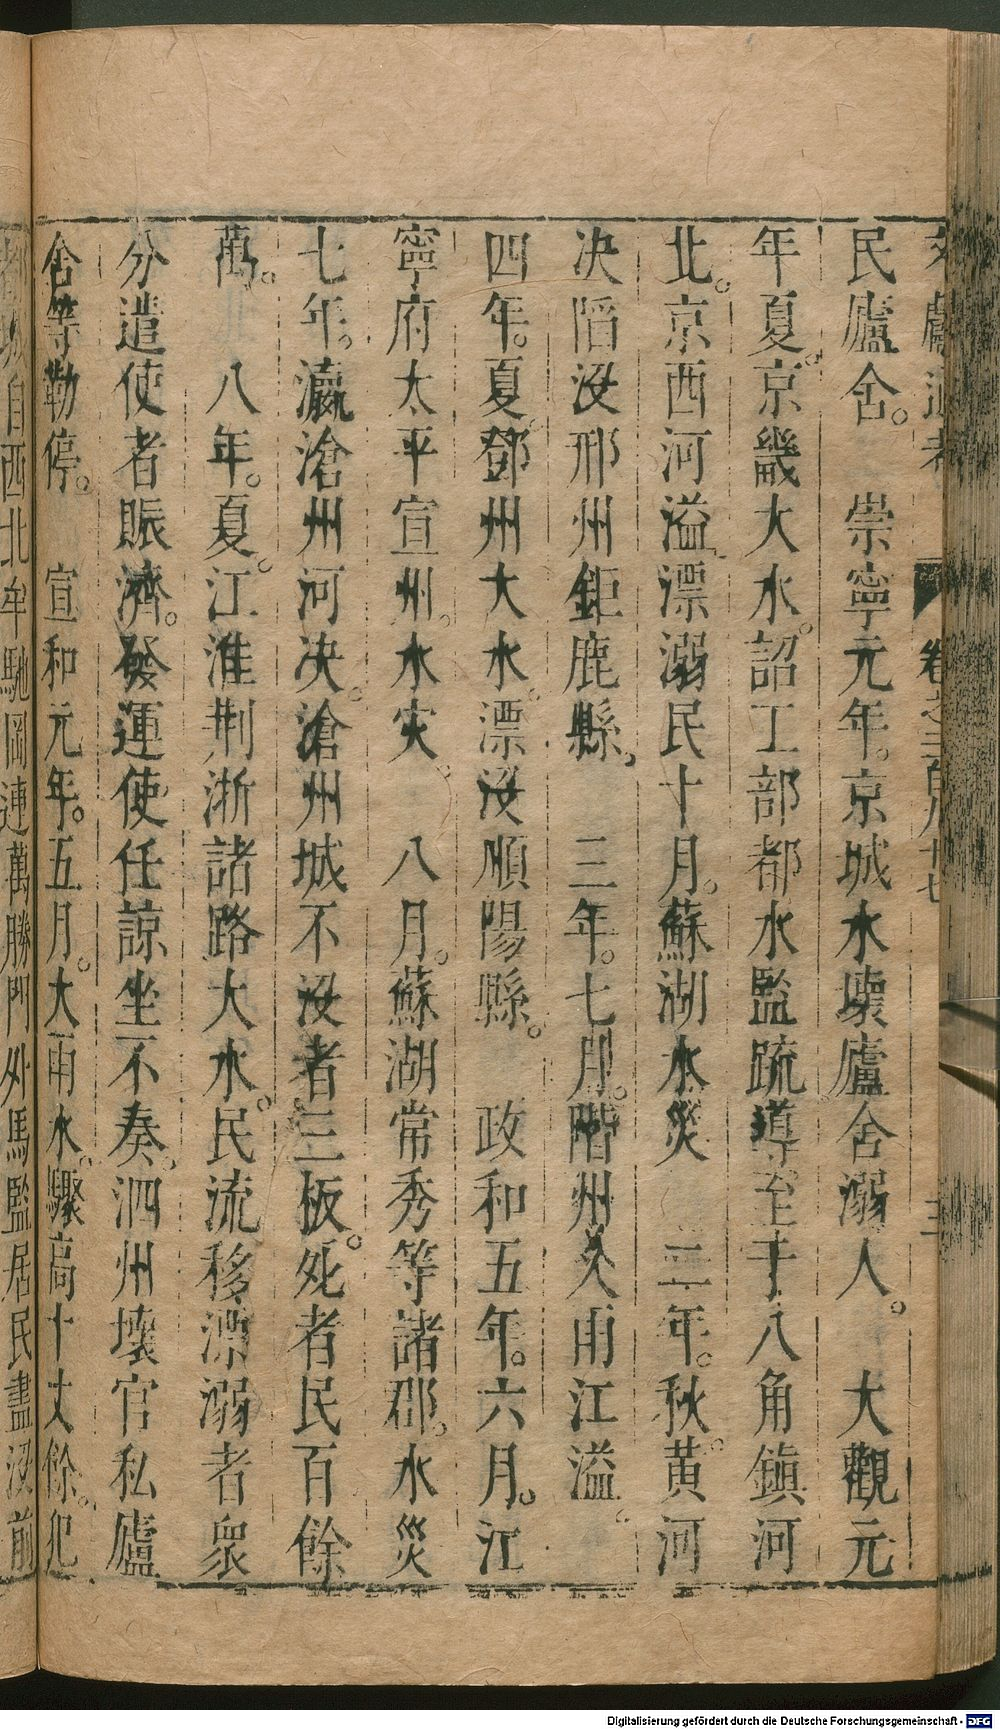 民廬舍。 崇寧元年。京城水壞廬舍溺人。 大觀元
年夏。京畿大水。詔工部都水監疏導至于八角鎮河
北。京西河溢。漂溺民十月。蘇湖水災 二年。秋。黃河
决陷没邢州鉅鹿縣。 三年。七月。階州久雨江溢。
四年。夏。鄧州大水。漂没順陽縣。 政和五年。六月。江
寧府太平宣州。水灾。 八月。蘇湖常秀等諸郡。水災
七年。瀛滄州河决。滄州城不没者三板。死者民百餘
萬。 八年。夏。江淮荆浙諸路大水。民流移漂溺者衆
分遣使者賑濟。發運使任諒坐不奏。泗州壞官私廬
舍等勒停。 宣和元年。五月。大雨水。驟高十丈餘。犯
都城自西北牟馳岡連萬勝門外馬監居民盡没前
文獻通考 卷之二百九十七 三
Digitalisierung gefördert durch die Deutsche Forschungsgemeinschaft - DFG